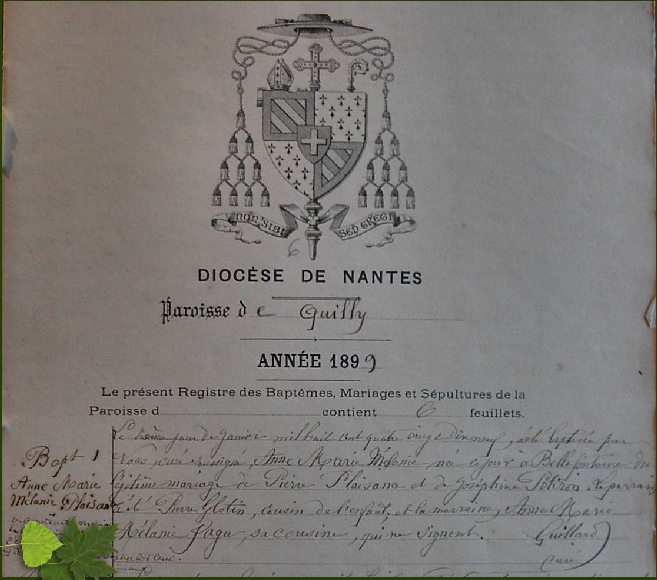 NON SIBI SED GREGI
6
DIOCÈSE DE NANTES
Paroisse de Quilly
ANNÉE 1899
Le présent Registre des Baptêmes, Mariages et Sépultures de la
Paroisse d contient 6 feuillets.
Bapt 1
Anne Marie
Mélanie Plaisance
Le jour de Janvier mil huit cent quatre vingt dix neuf, a été baptisée par
Nous curé soussigné, Anne Marie Mélanie née ce jour à Bellefontaine du
légitime mariage de Pierre Plaisance et de Joséphine
été Pierre Glotin, cousin de l'enfant et la marraine, Anne Marie
Mélanie sa cousine, qui ne signent. Guillard
Curé